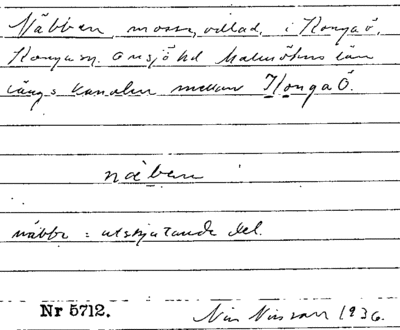 Näbben, mossodlad, i Konga ö,
Konga sn. Onsjö hd Malmöhus län
längs kanalen mellan Konga Ö.
näben
näbbe = utskjutande del.
Nr 5712. Nils Nilsson 1936.